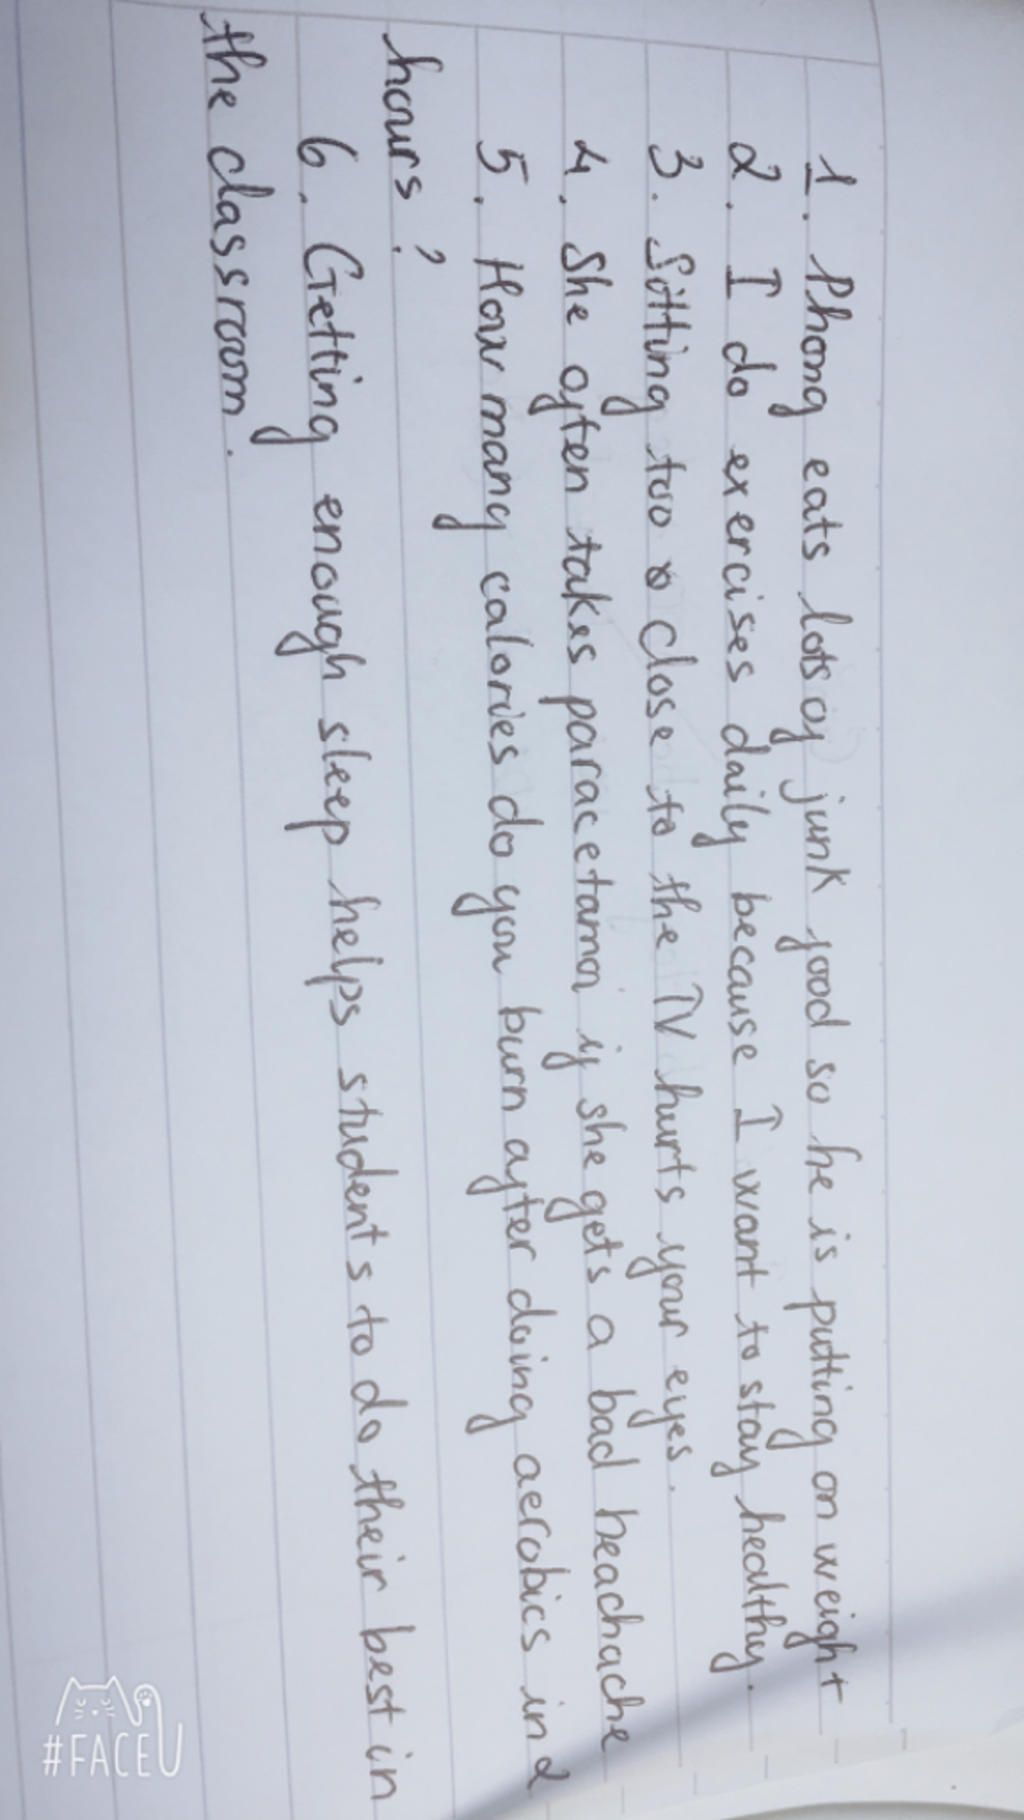 1. Phong eats lots of junk food so he is putting on weight
2. I do exercises daily because I want to stay healthy.
3. Sitting too close to the TV hurts your eyes.
4. She often takes paracetamon if she gets a bad heachache
5. How many calories do you burn after doing aerobics in 2
hours?
6. Getting enough sleep helps students to do their best in
the classroom.
#FACEU